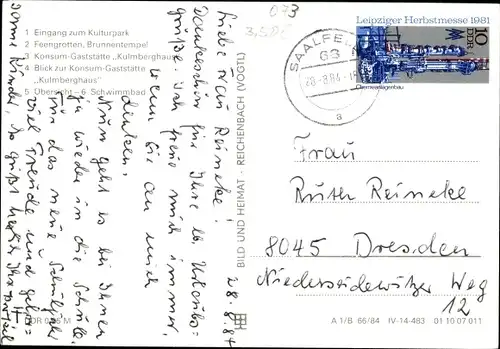 073
3,50€
1 Eingang zum Kulturpark
2 Feengrotten, Brunnentempel
3 Konsum-Gaststätte „Kulmberghaus"
4 Blick zur Konsum-Gaststätte
„Kulmberghaus"
5 Übersicht 6 Schwimmbad
Leipziger Herbstmesse 1981
10
DDR
Chemieanlagenbau
SAALFEL
68
28.-8.84.-1
a
28.8.84
Liebe Frau Reineke!
Dankeschön für Ihre lb. Urlaubs-
grüße. Ich freue mich immer,
wenn Sie an mich
denken.
Nun geht es bei Ihnen
ja wieder in die Schule.
Für das neue Schuljahr
viel Freude und
Kinder, so grüßt herzlich Ihr
BILD UND HEIMAT · REICHENBACH (VOGTL)
Frau
Ruth Reineke
8045 Dresden
Niedersedlitzer Weg
12
DDR 0,25 M
A 1/B 66/84 IV-14-483 01 10 07 011